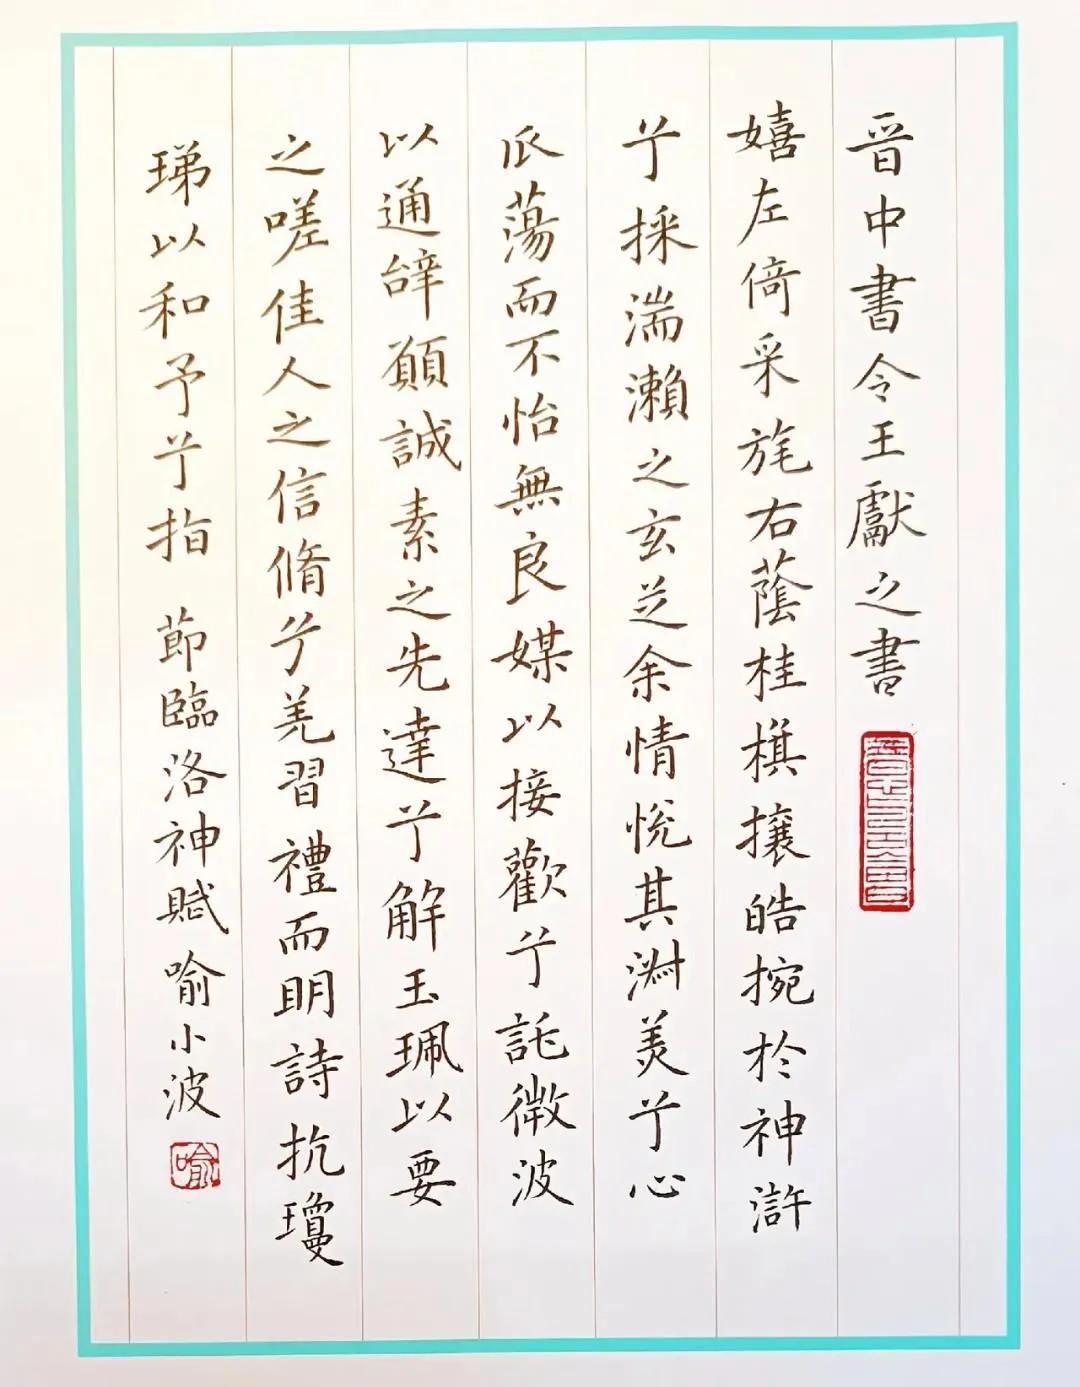 晋中書令王獻之書
嬉左倚采旄右蔭桂棋攘皓捥於神滸
兮採湍瀨之玄芝余情悅其淑美兮心
蕩而不怡無良媒以接歡兮託微波
以通辝願誠素之先達兮解玉珮以要
之嗟佳人之信脩兮羌習禮而明詩抗瓊
珶以和予兮指 節臨洛神賦喻小波
喻